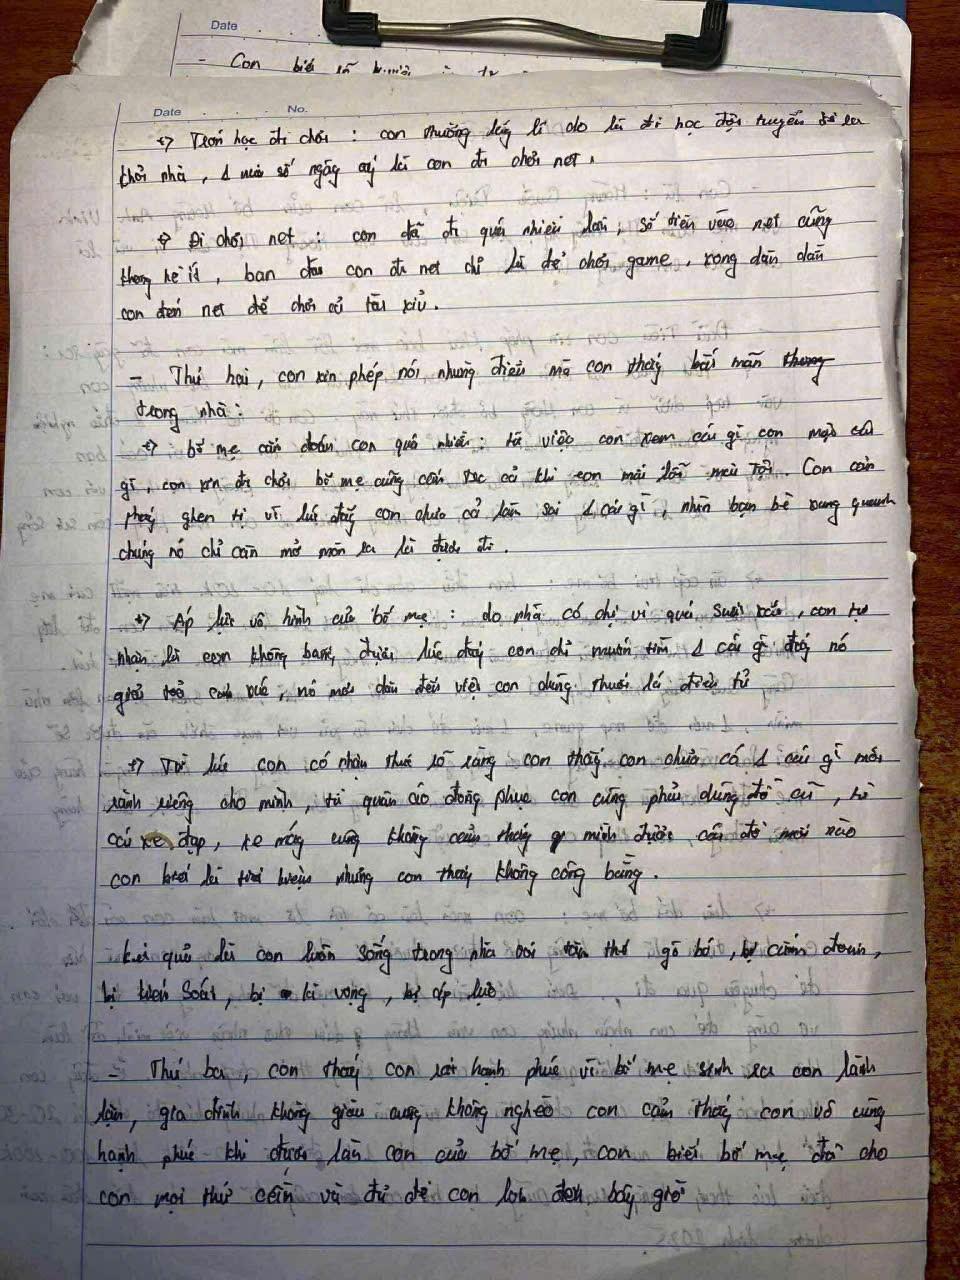 Date No.
Date
- Con biết
Date No.
→ Trốn học đi chơi : con thường lấy lí do là đi học đội tuyển để ra
khỏi nhà, 1 nửa số ngày ấy là con đi chơi net.
→ Đi chơi net : con đã đi quá nhiều lần, số tiền vào net cũng
không hề ít, ban đầu con đi net chỉ là để chơi game, xong dần dần
con đến net để chơi cả tài xỉu.
- Thứ hai, con xin phép nói những điều mà con thấy bất mãn
trong nhà :
→ bố mẹ cấm đoán con quá nhiều : từ việc con xem cái gì con mặc cái
gì, con xin đi chơi bố mẹ cũng cấm cả khi con mãi lớn mới tới. Con còn
thấy ghen tị vì lúc đấy con chưa cả làm sai 1 cái gì, nhìn bạn bè xung quanh
chúng nó chỉ cần mở mồm ra là được đi.
→ Áp lực vô hình của bố mẹ : do nhà có chị vì quá xuất sắc, con tự
nhận là con không bằng được lúc đấy con chỉ muốn tìm 1 cái gì đấy nó
giải toả cảm xúc, nó mới dẫn đến việc con dùng thuốc lá điện tử
→ Từ lúc con có nhận thức rõ ràng con thấy con chưa có 1 cái gì mới
dành riêng cho mình, từ quần áo đồng phục con cũng phải dùng đồ cũ, từ
cái xe đạp, xe máy cũng không cảm thấy mình được cái đồ mới nào
con biết là tiết kiệm nhưng con thấy không công bằng.
kết quả là con luôn sống trong nhà với tâm thế gò bó, bị cấm đoán,
bị kiểm soát, bị kì vọng, bị áp lực
- Thứ ba, con thấy con rất hạnh phúc vì bố mẹ sinh ra con lành
lặn, gia đình không giàu cũng không nghèo con cảm thấy con vô cùng
hạnh phúc khi được làm con của bố mẹ, con biết bố mẹ đã cho
con mọi thứ cần và đủ để con lớn đến bây giờ